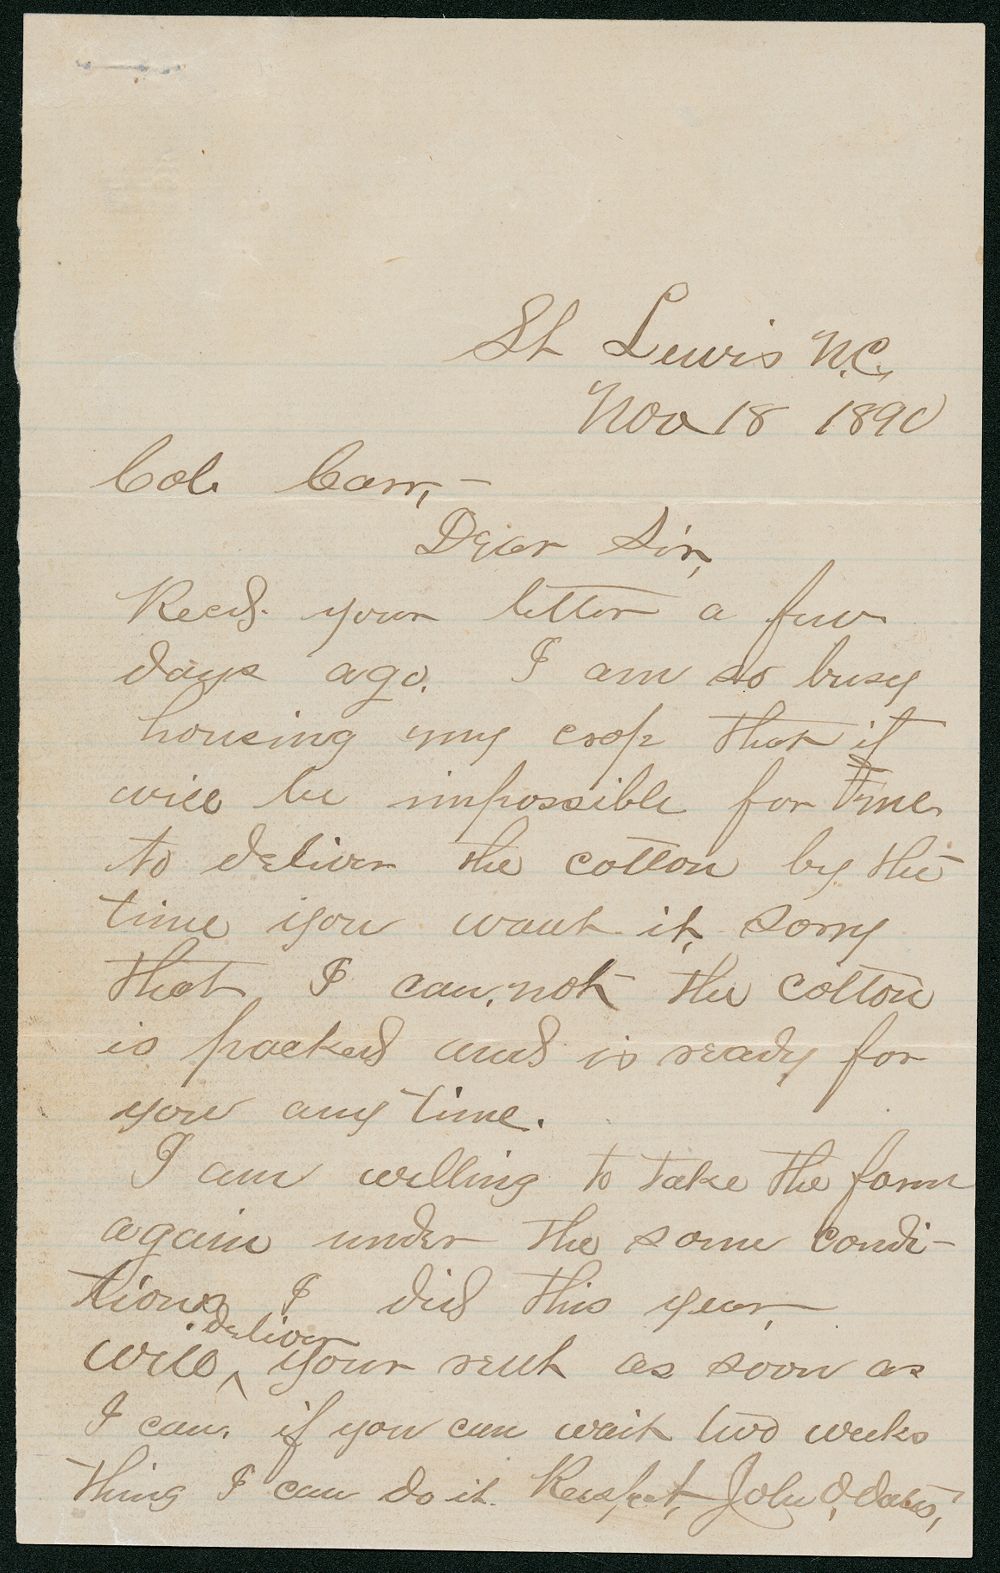 St Lewis N.C.,
Nov 18 1890
Col. Carr, –
Dear Sir,
Recd. your letter a few
days ago. I am so busy
housing my crop that it
will be impossible for me
to deliver the cotton by the
time you want it, sorry
that I can not the cotton
is packed and is ready for
you any time.
I am willing to take the farm
again under the same condi-
tions I did this year,
deliver
will ^ your rent as soon as
I can, if you can wait two weeks
thing I can do it. Respect, John